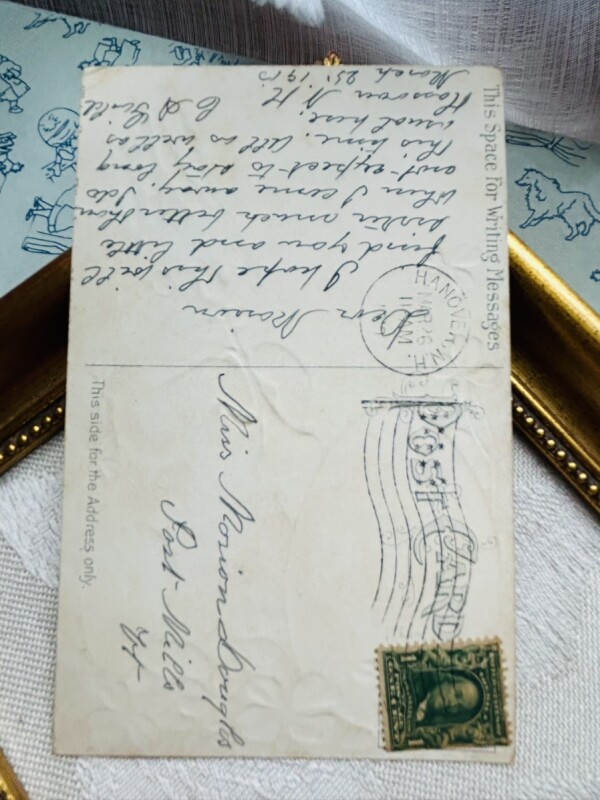 This Space for Writing Messages
Dear Marion
I hope this will
find you and little
sister much better than
when I came away. I do
not expect to stay long
this time. All as well as
usual here.
Hanover N. H.
March 25,
HANOVER, N.H.
MAR 26
11 AM
POST CARD
This side for the Address only.
Miss Marion Douglas
Post Mills
Vt